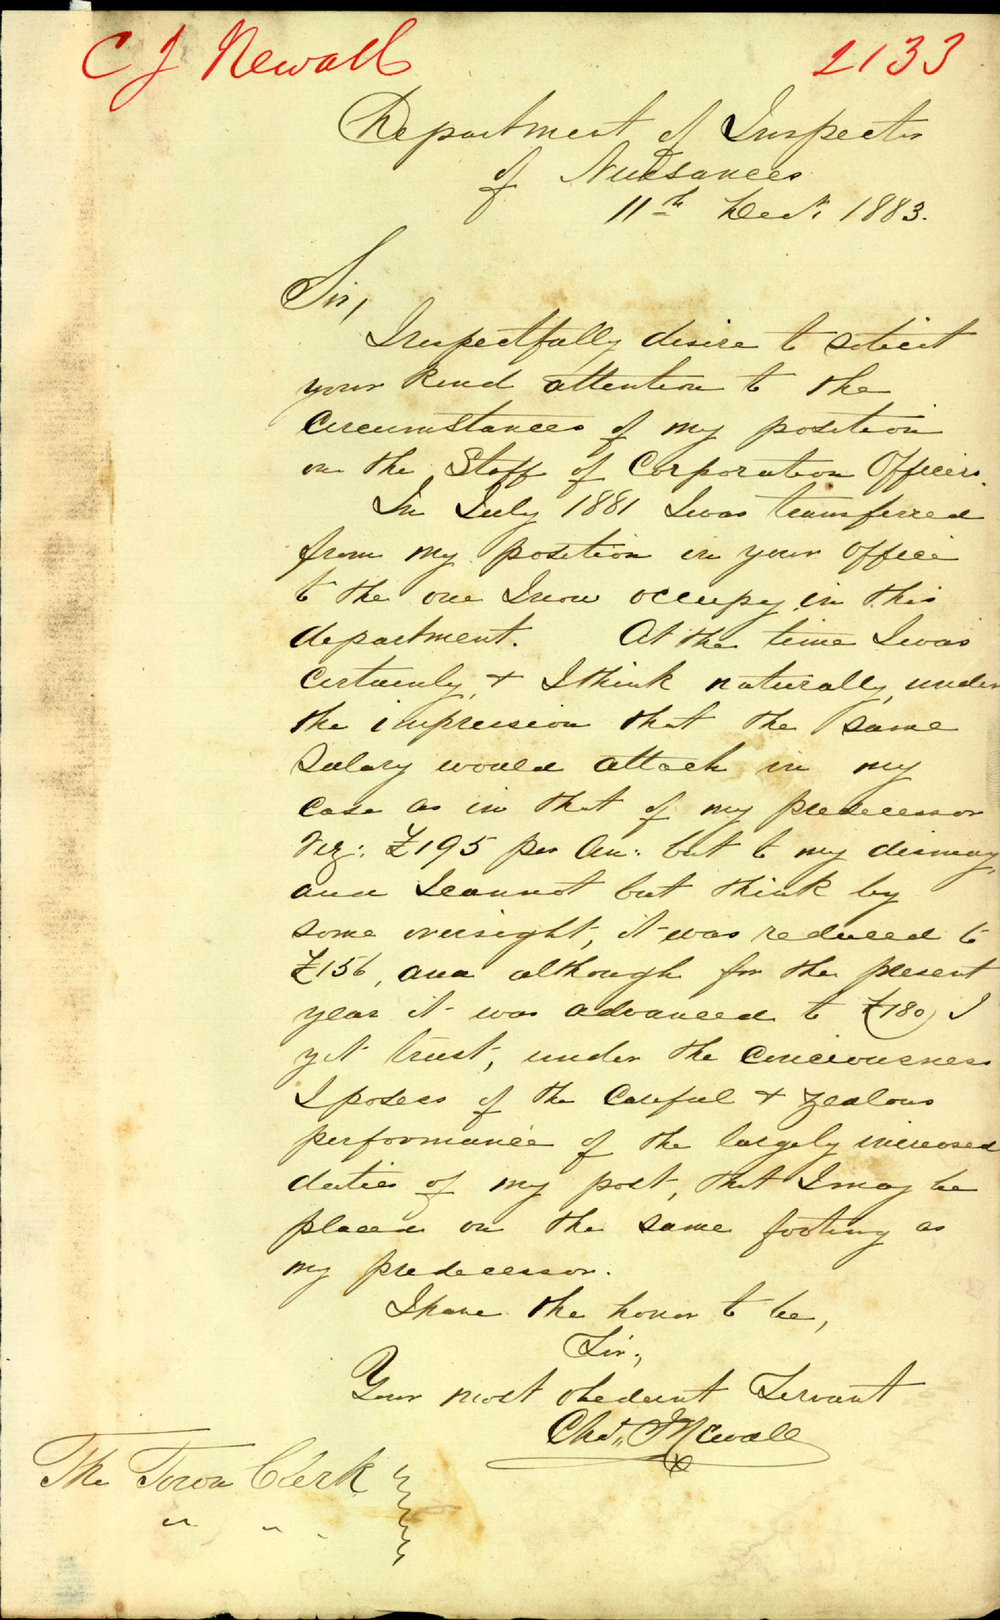 C J Newall 2133
Department of Inspector
of Nuisances
11th Decr. 1883.
Sir,
I respectfully desire to solicit
your kind attention to the
circumstances of my position
on the Staff of Corporation Officers.
In July 1881 I was transferred
from my position in your office
to the one I now occupy in this
department. At the time I was
certainly, & I think naturally, under
the impression that the same
salary would attach in my
case as in that of my predecessor
viz: £195 per An: but to my dismay,
and I cannot but think by
some oversight, it was reduced to
£156, and although for the present
year it was advanced to £180, I
yet trust, under the conciousness
I posess of the careful & zealous
performance of the largely increased
duties of my post, that I may be
placed on the same footing as
my predecessor.
I have the honor to be,
Sir,
Your most obedient Servant
Chas. J Newall
The Town Clerk
" " "